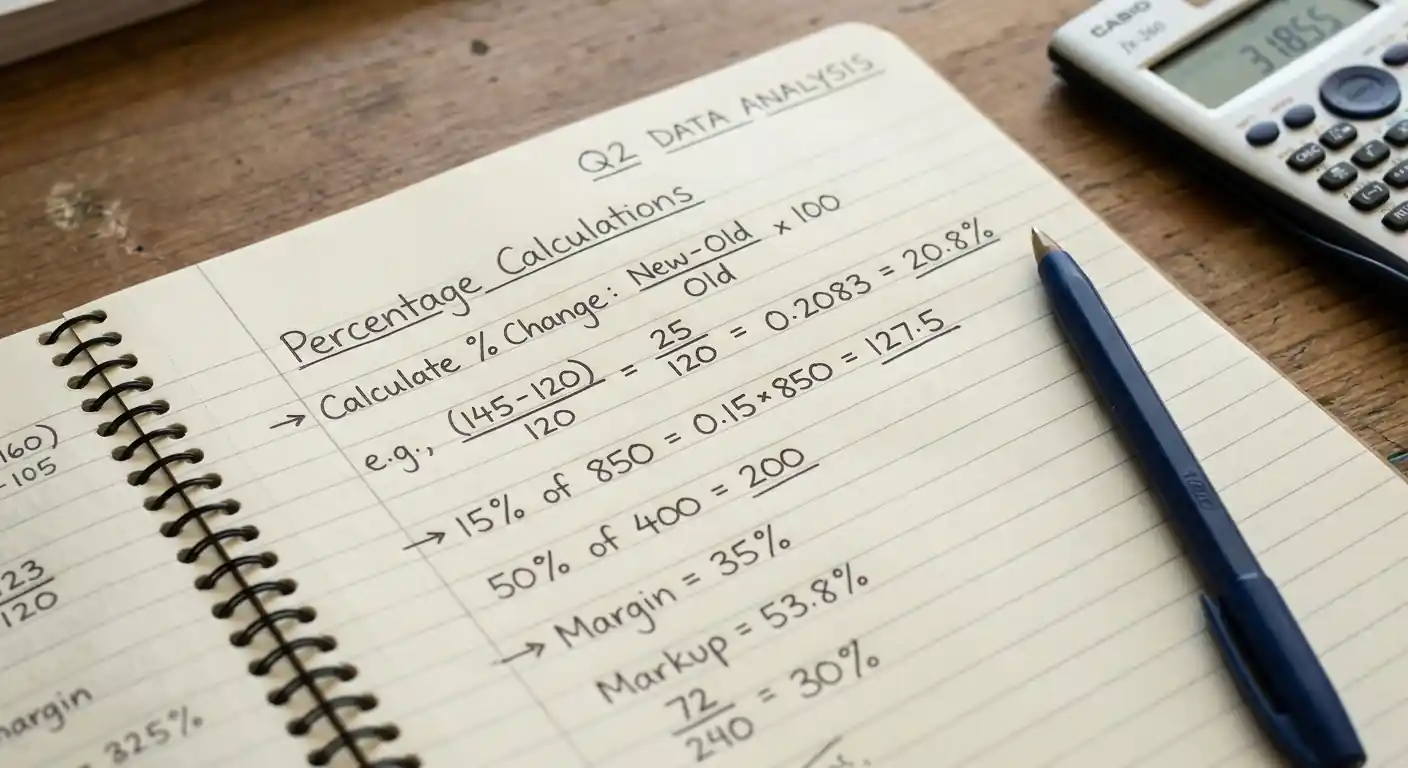 Q2 DATA ANALYSIS
Percentage Calculations
→ Calculate % Change: New-Old / Old × 100
e.g., (145-120) / 120 = 25 / 120 = 0.2083 = 20.8%
→ 15% of 850 = 0.15×850 = 127.5
50% of 400 = 200
→ Margin = 35%
Markup = 53.8%
72 / 240 = 30%
160)
-105
23
120
325%
CASIO
31855